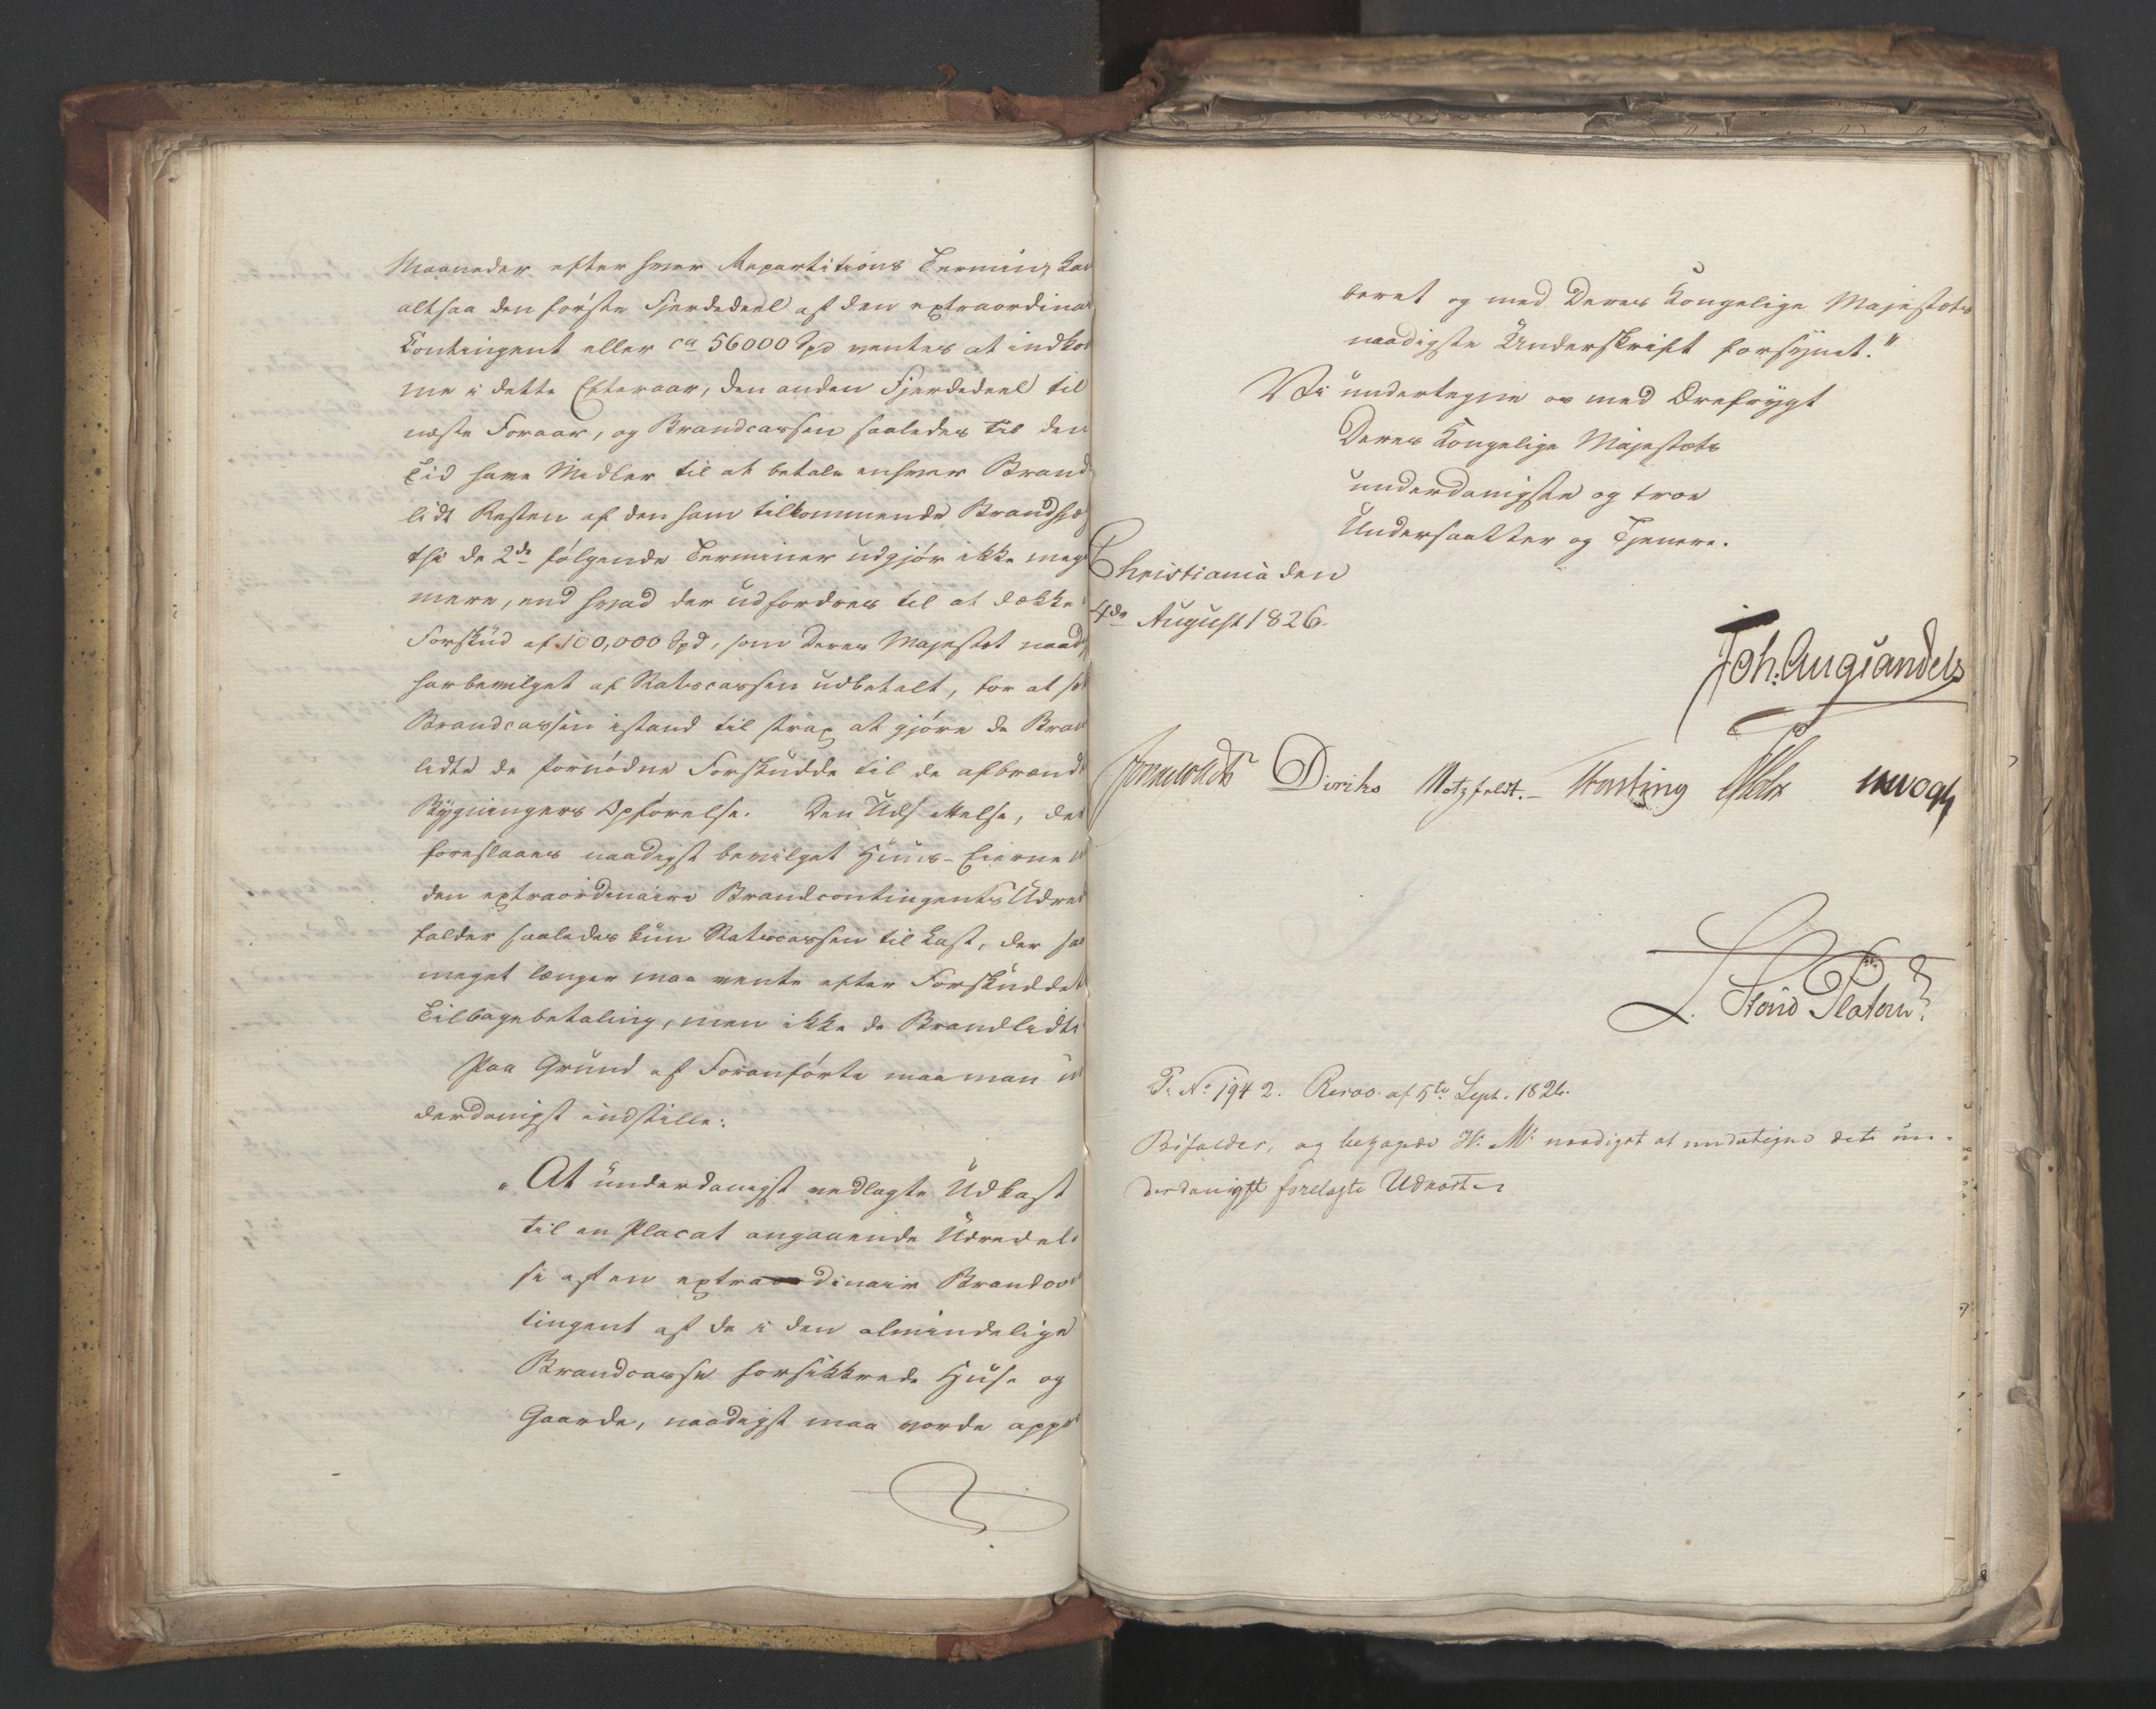 Maaneder efter hver Repartitions Termin, kan
altsaa den første Fjerdedeel af den extraordinai
Contingent eller ca 56000 Spd ventes at indkom
me i dette Efteraar, den anden Fjerdedeel til
næste Foraar, og Brandcassen saaledes til den
Tid have Midler til at betale enhver Brand
lidt Resten af den ham tilkommende Brandhjæ
thi de 2de følgende Terminer udgjør ikke meg
mere, end hvad der udfordres til at dække
Forskud af 100,000 Spd, som Deres Majestæt naad
har bevilget af Statscassen udbetalt, for at sæt
Brandcassen istand til strax at gjøre de Bran
lidte de fornødne Forskudde til de afbrændt
Bygningers Opførelse. Den Udsættelse, der
foreslaaes naadigst bevilget Huus-Eierne
den extraordinaire Brandcontingents Udred
falder saaledes kun Statscassen til Last, der saa
meget længer maa vente efter Forskuddet
Tilbagebetaling, men ikke de Brandlidte
Paa Grund af Foranførte maa man un
derdanigst indstille:
"At underdanigst vedlagte Udkast
til en Placat angaaende Udredel-
se af en extraordinair Brandcon
tingent af de i den almindelige
Brandcasse forsikkrede Huse og
Gaarde, naadigst maa vorde appr
beret og med Deres Kongelige Majestæts
naadigste Underskrift forsynet."
Vi undertegne os med Ærefrygt
Deres Kongelige Majestæts
underdanigste og troe
Undersaatter og Tjenere.
Christiania den
4de August 1826.
Joh: Aug: Sandels
Sommerhielm Diriks Motzfeldt. Fasting Holst
L. Stoud Platou
P. No 1942. Resol. af 5te Sept. 1826.
Bifaldes, og behagede H. M. naadigst at undertegne dette un-
derdanigst forelagte Udkast